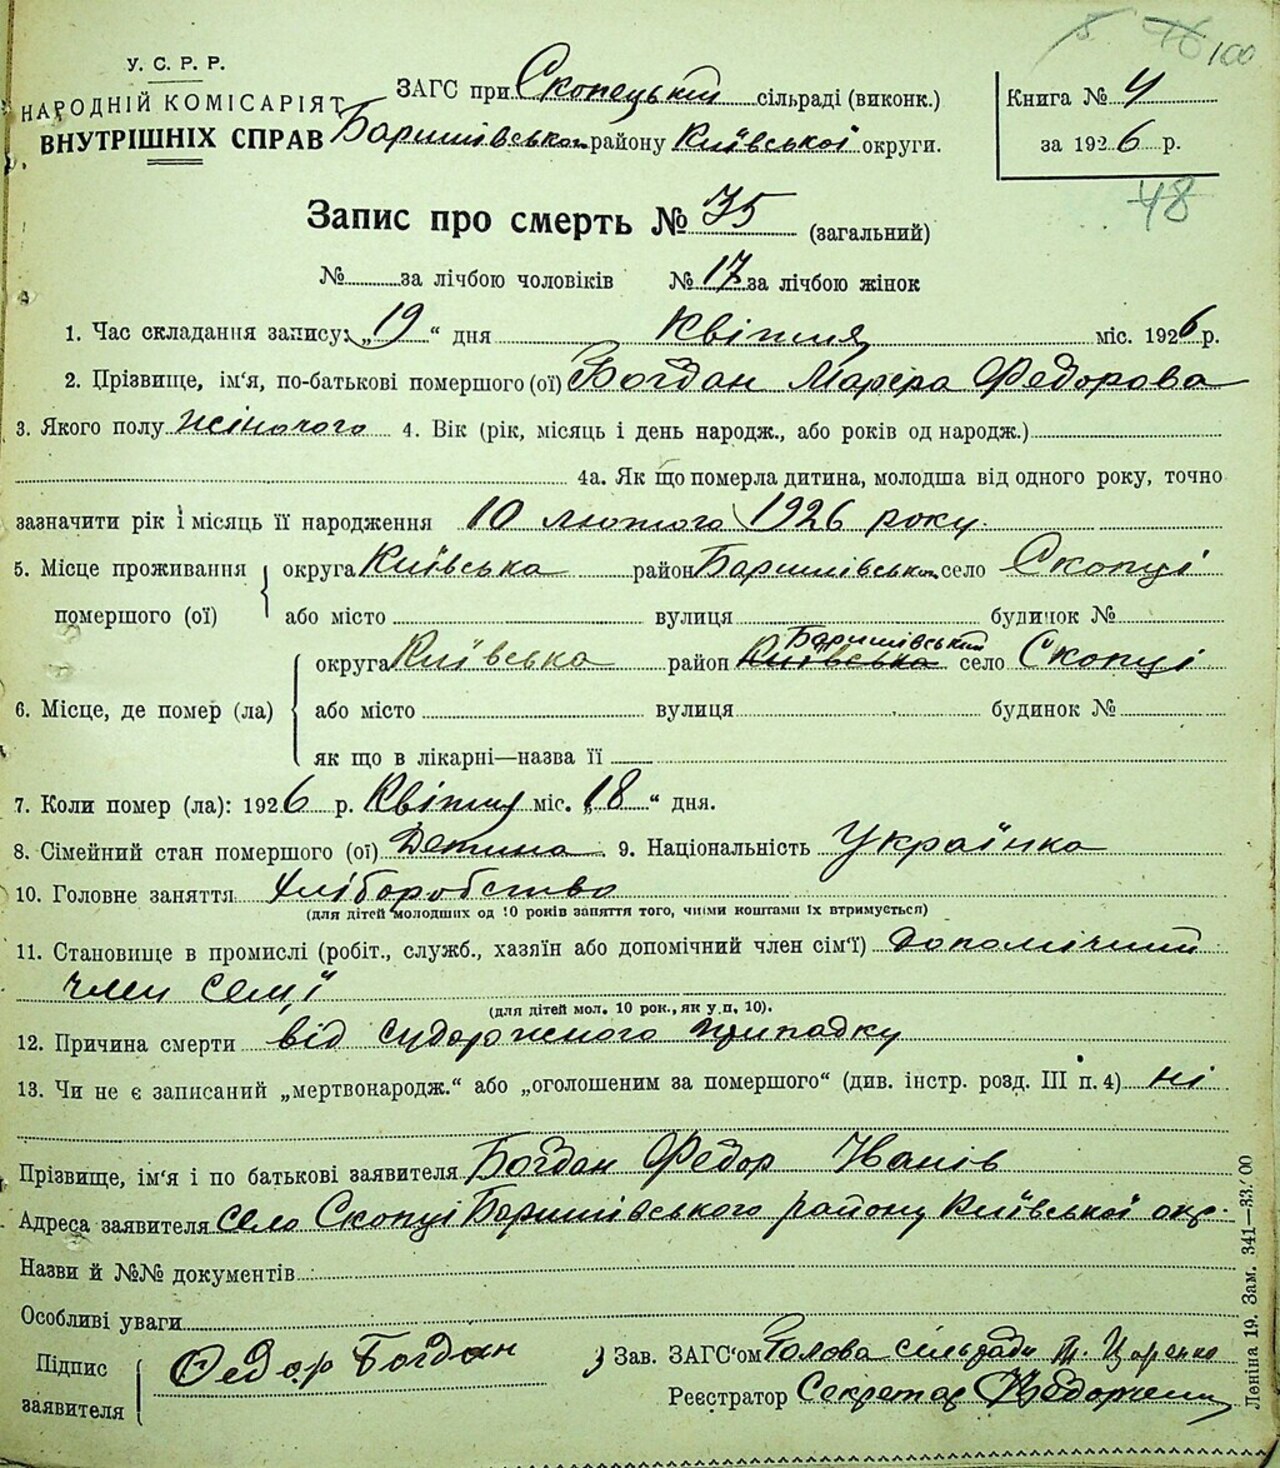 5 46 100
У. С. Р. Р.
НАРОДНІЙ КОМІСАРІЯТ
ВНУТРІШНІХ СПРАВ
ЗАГС при Скопецькій сільраді (виконк.)
Баришівського району Київської округи.
Книга № 4
за 1926 р.
48
Запис про смерть № 35 (загальний)
№ за лічбою чоловіків № 17 за лічбою жінок
1. Час складання запису: „19“ дня Квітня міс. 1926 р.
2. Прізвище, ім'я, по-батькові помершого (ої) Богдан Федорова
3. Якого полу жіночого 4. Вік (рік, місяць і день народж., або років од народж.)
4а. Як що померла дитина, молодша від одного року, точно
зазначити рік і місяць її народження 10 лютого 1926 року.
5. Місце проживання округа Київська район Баришівськ. село Скопці
помершого (ої) або місто вулиця будинок №
Баришівський
округа Київська район Київська село Скопці
6. Місце, де помер (ла) або місто вулиця будинок №
як що в лікарні—назва її
7. Коли помер (ла): 1926 р. Квітня міс. „18“ дня.
8. Сімейний стан помершого (ої) Дитина 9. Національність Українка
10. Головне заняття Хліборобство
(для дітей молодших од 10 років заняття того, чиїми коштами їх втримується)
11. Становище в промислі (робіт., служб., хазяїн або допомічний член сім'ї) допомічний
член семї
(для дітей мол. 10 рок., як у п. 10).
12. Причина смерти від судорожного припадку
13. Чи не є записаний „мертвонародж.“ або „оголошеним за помершого“ (див. інстр. розд. III п. 4) ні
Прізвище, ім'я і по батькові заявителя Богдан Федор Іванів
Адреса заявителя село Скопці Баришівського району Київської окр.
Назви й №№ документів
Особливі уваги
Підпис
заявителя
Федор Богдан
Зав. ЗАГС'ом Голова сільради Т. Царенко
Реєстратор Секретар
Леніна 19. Зам. 341—33.000